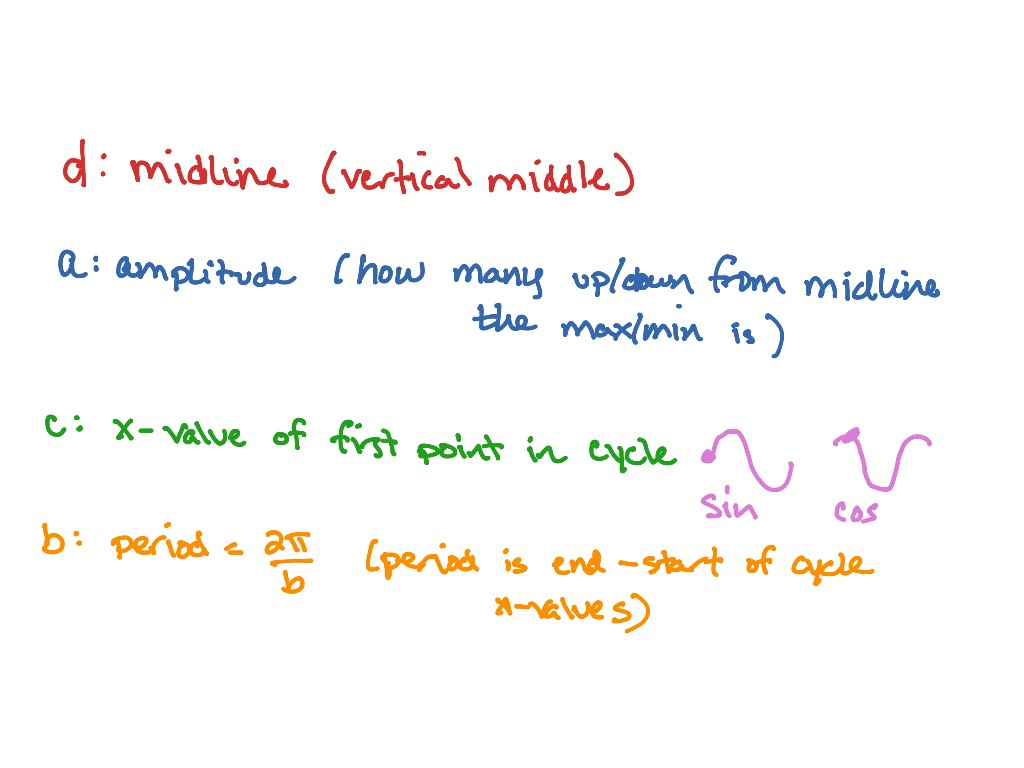 d: midline (vertical middle)
a: amplitude (how many up/down from midline
the max/min is)
c: x-value of first point in cycle
sin cos
b: period = 2π/b (period is end-start of cycle
x-values)